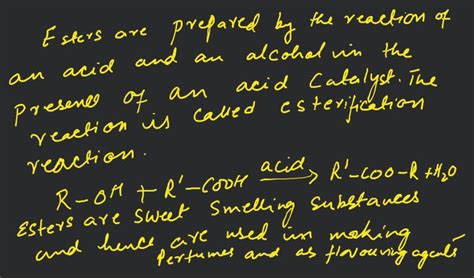 Esters are prepared by the reaction of
an acid and an alcohol in the
presence of an acid catalyst. The
reaction is called esterification
reaction.
R-OH + R'-COOH acid→ R'-COO-R + H₂O
Esters are sweet smelling substances
and hence are used in making
Perfumes and as flavouring agents